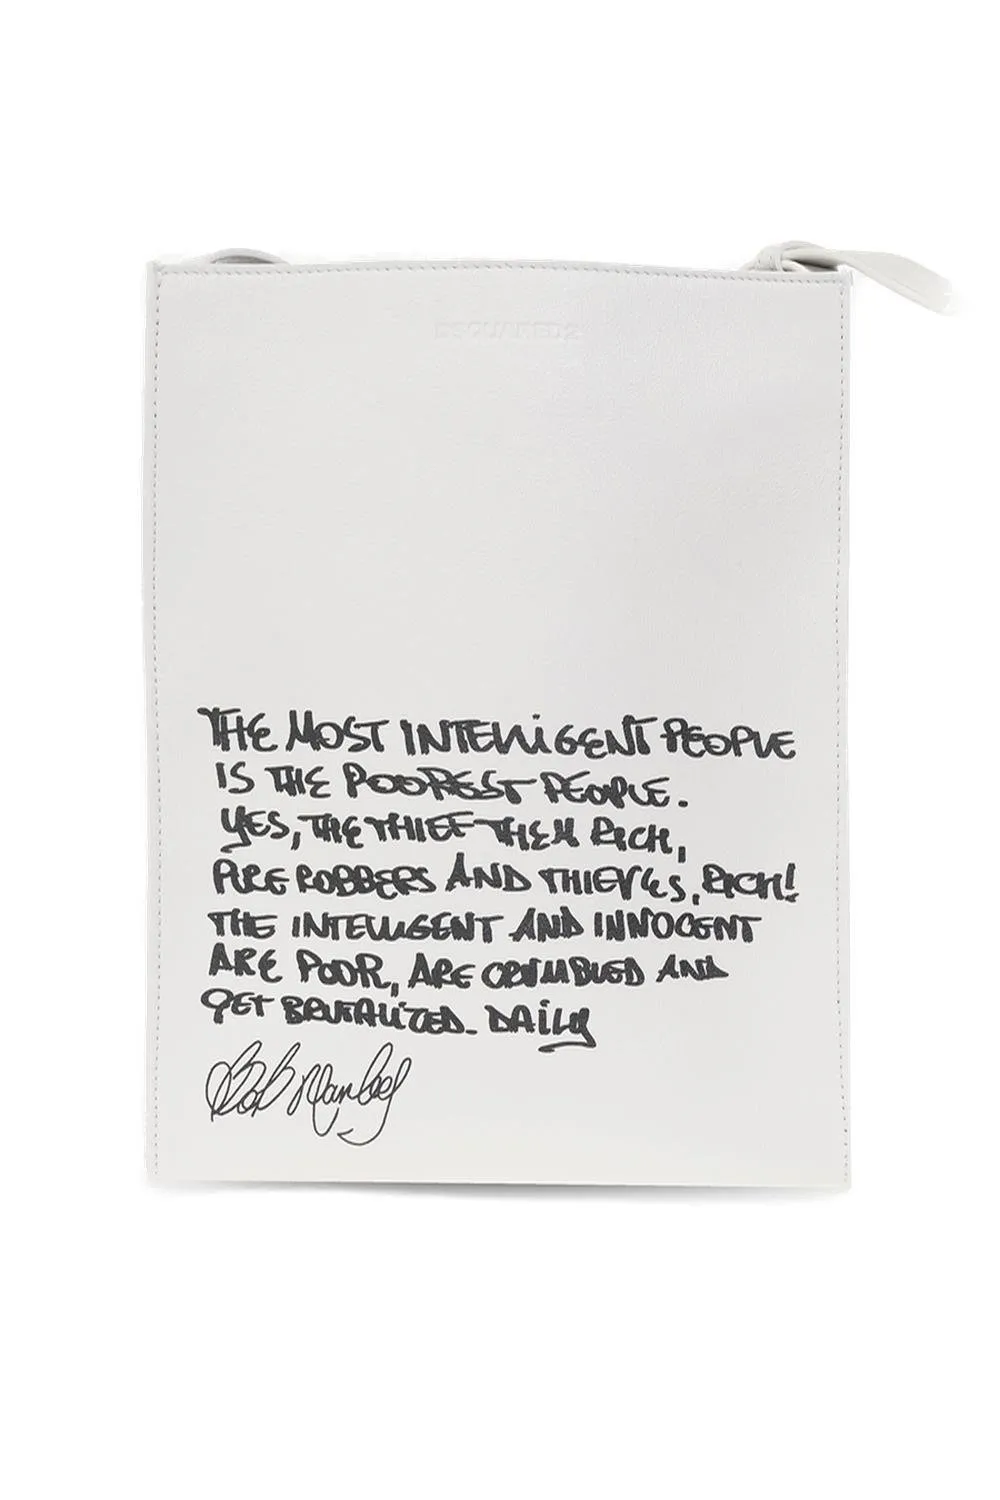 DSQUARED2
THE MOST INTELLIGENT PEOPLE
IS THE POOREST PEOPLE.
YES, THE THIEF THEM RICH,
PURE ROBBERS AND THIEVES, RICH!
THE INTELLIGENT AND INNOCENT
ARE POOR, ARE CRUMBLED AND
GET BRUTALIZED. DAILY
Bob Marley